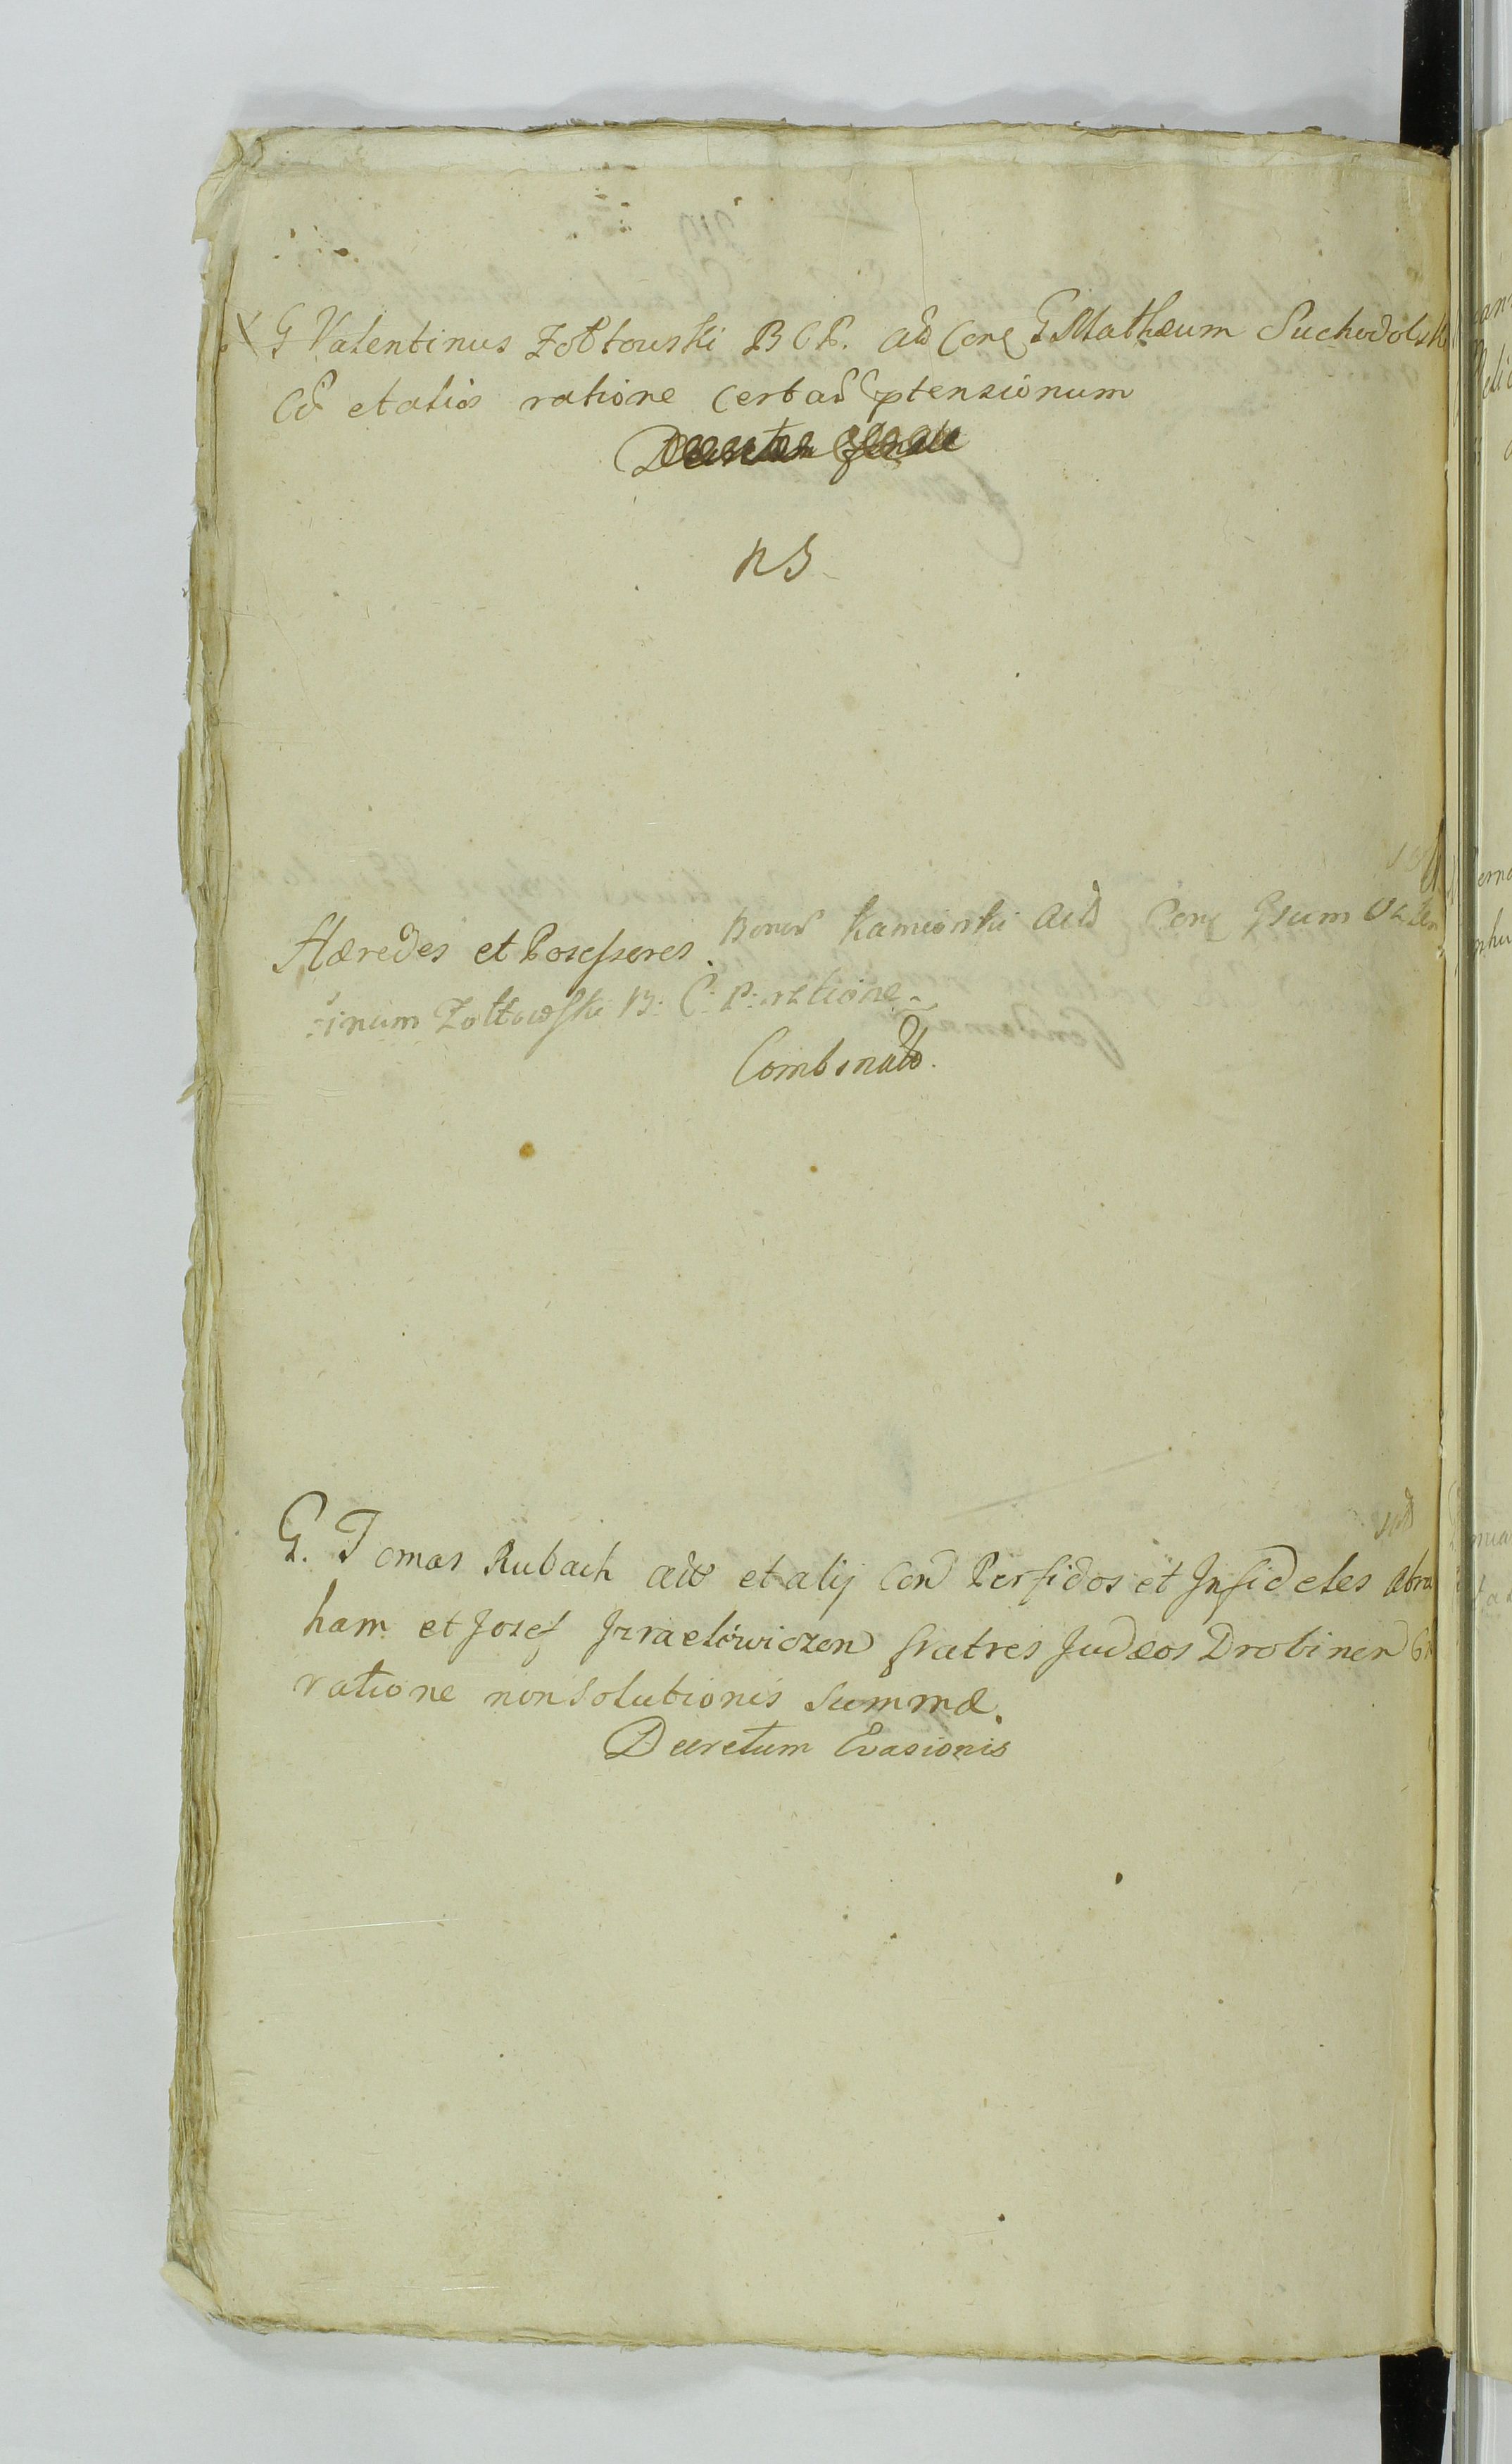 G Valentinus Zołtowski B C P. ad Cone G Mathæum Suchodolsk
et alios ratione Certar ptensionum
Decretum
NB
Hæredes et Possessores Bonor Kamionki Act Cone Gsum Valen
tinum Zołtowski B: C: P: ratione
Combinatio.
G. Tomas Rubach act et alij Con Perfidos et Infideles Abra
ham et Josef Izraelowiczon fratres Judæos Drobinen
ratione non Solutionis Summæ.
Decretum Evasionis